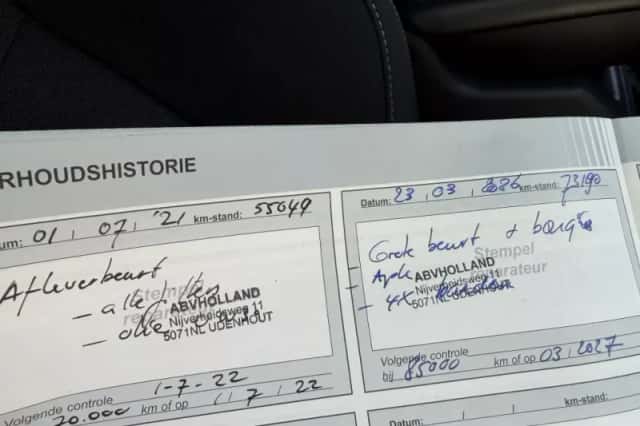 RHOUDSHISTORIE
um: 01 / 07 / '21 km-stand: 55049
Afleverbeurt
- alle filters
Stempel
ABVHOLLAND
- olie
Nijverheidsweg 11
5071NL UDENHOUT
1-7-22
Volgende controle
20.000 km of op 1 / 7 / 22
Datum: 23 / 03 / 2026 km-stand: 73190
Grote beurt +
Stempel
reparateur
- Apk
ABVHOLLAND
Nijverheidsweg 11
- 4x
5071NL UDENHOUT
Volgende controle
bij 85000 km of op 03 / 2027
Datum: / / km-stand: